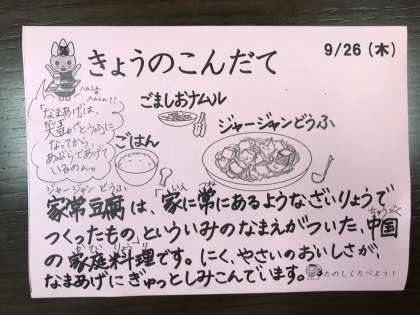 9/26(木)
きょうのこんだて
へんしん
へんしん!!
「なまあげは、
だいずがとうふに
なってから、
あぶらであげて
いるのん。
ごましおナムル
ごはん
ジャージャンどうふ
ジャージャン どうふ
家常豆腐は、「家に常にあるようなざいりょうで
いえ つね
つくったもの」といういみのなまえがついた、中国
ちゅうごく
の家庭料理です。にく、やさいのおいしさが、
かていりょうり
なまあげにぎゅっとしみこんでいます。
たのしくたべよう!